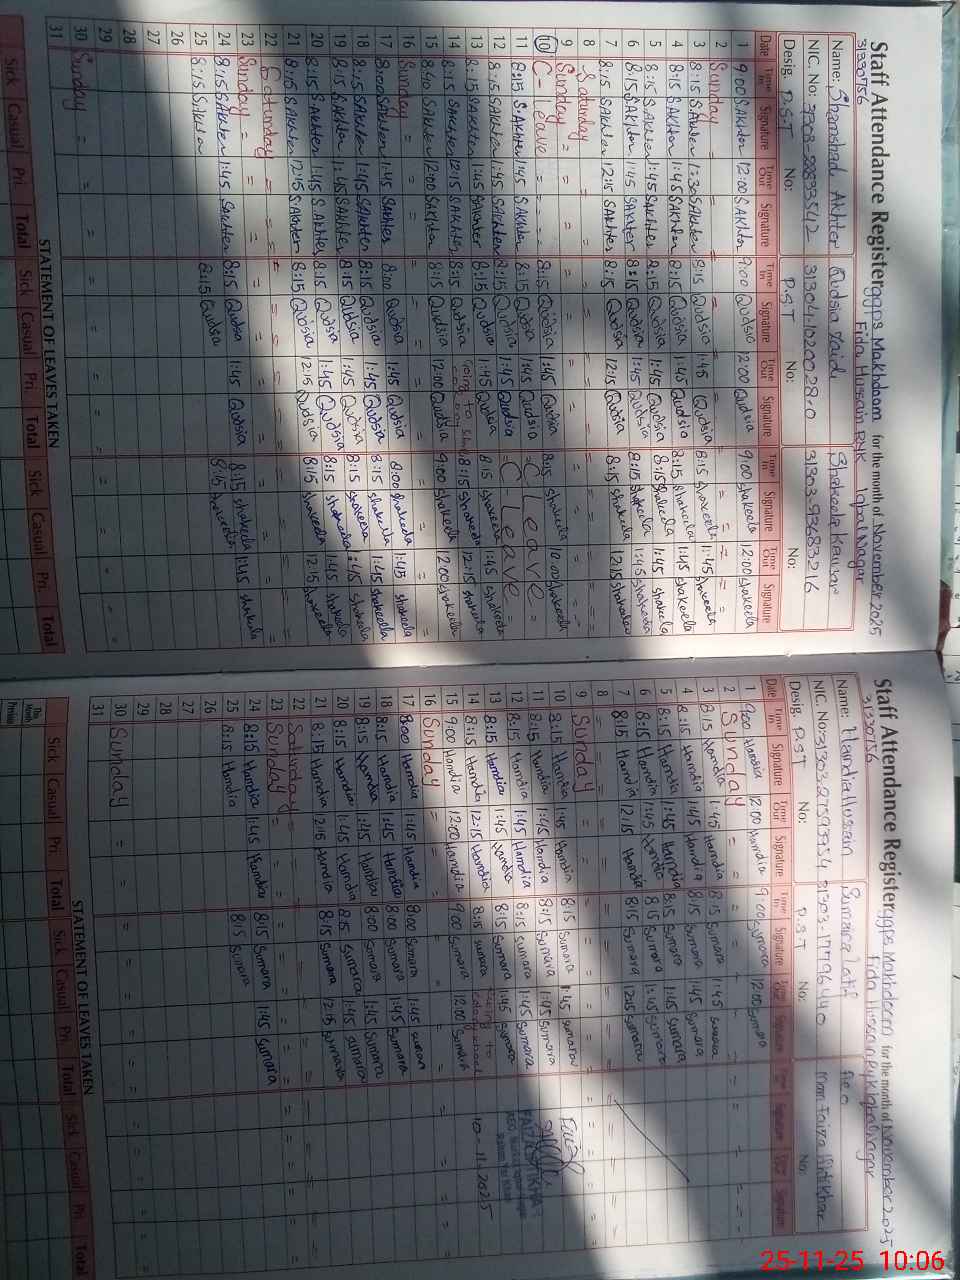 Staff Attendance Register ggps Makhdoom for the month of November 2025
31330756 Fida Hussain RYK Iqbal Nagar
Name: Shamshad Akhter Qudsia Zaidi Shakeela Kausar
NIC. No: 31304-1020028-0 31303-9368321-6
Desig. P.S.T No: P.S.T No: No:
Date Time In Signature Time Out Signature Time In Signature Time Out Signature Time In Signature Time Out Signature
1 9:00 S.Akhter 12:00 S.Akhter 9:00 Qudsia 12:00 Qudsia 9:00 Shakeela 12:00 Shakeela
2 Sunday = = = = =
3 8:15 S.Akhter 1:30 S.Akhter 8:15 Qudsia 1:45 Qudsia 8:15 Shakeela 1:45 Shakeela
4 8:15 S.Akhter 1:45 S.Akhter 8:15 Qudsia 1:45 Qudsia 8:15 Shakeela 1:45 Shakeela
5 8:15 S.Akhter 1:45 S.Akhter 8:15 Qudsia 1:45 Qudsia 8:15 Shakeela 1:45 Shakeela
6 8:15 S.Akhter 1:45 S.Akhter 8:15 Qudsia 1:45 Qudsia 8:15 Shakeela 1:45 Shakeela
7 8:15 S.Akhter 12:15 S.Akhter 8:15 Qudsia 12:15 Qudsia 8:15 Shakeela 12:15 Shakeela
8 Saturday = = = =
9 Sunday = = = =
10 C-Leave - - - - 8:15 Qudsia 1:45 Qudsia 8:15 Shakeela 10:00 Shakeela
11 8:15 S.Akhter 1:45 S.Akhter 8:15 Qudsia 1:45 Qudsia = C Leave =
12 8:15 S.Akhter 1:45 S.Akhter 8:15 Qudsia 1:45 Qudsia = C-Leave =
13 8:15 S.Akhter 1:45 S.Akhter 8:15 Qudsia 1:45 Qudsia 8:15 Shakeela 1:45 Shakeela
14 8:15 S.Akhter 12:15 S.Akhter 8:15 Qudsia 8:15 Shakeela 12:15 Shakeela
15 8:40 S.Akhter 12:00 S.Akhter 8:15 Qudsia 12:00 Qudsia 9:00 Shakeela 12:00 Shakeela
16 Sunday = = = = =
17 8:00 S.Akhter 1:45 S.Akhter 8:00 Qudsia 1:45 Qudsia 8:00 Shakeela 1:45 Shakeela
18 8:15 S.Akhter 1:45 S.Akhter 8:15 Qudsia 1:45 Qudsia 8:15 Shakeela 1:45 Shakeela
19 8:15 S.Akhter 1:45 S.Akhter 8:15 Qudsia 1:45 Qudsia 8:15 Shakeela 1:45 Shakeela
20 8:15 S.Akhter 1:45 S.Akhter 8:15 Qudsia 1:45 Qudsia 8:15 Shakeela 1:45 Shakeela
21 8:15 S.Akhter 12:15 S.Akhter 8:15 Qudsia 12:15 Qudsia 8:15 Shakeela 12:15 Shakeela
22 Saturday = = = =
23 Sunday = = = =
24 8:15 S.Akhter 1:45 S.Akhter 8:15 Qudsia 1:45 Qudsia 8:15 Shakeela 1:45 Shakeela
25 8:15 S.Akhter 8:15 Qudsia 8:15 Shakeela
26
27
28
29
30 Sunday = = = = =
31
STATEMENT OF LEAVES TAKEN
Sick Casual Pri. Total Sick Casual Pri. Total Sick Casual Pri. Total
Staff Attendance Register ggps Makhdoom for the month of November 2025
31330756 Fida Hussain Ryk Iqbal Nagar
Name: Hamdia Hussain Sumaira Latif A.e.o
NIC. No: 31303-2759395-4 Mam Faiza Iftikhar
Desig. P.S.T No: P.S.T No: No:
Date Time In Signature Time Out Signature Time In Signature Time Out Signature Time In Signature Time Out Signature
1 9:00 Hamdia 12:00 Hamdia 9:00 Sumara 12:00 Sumara
2 Sunday = = = =
3 8:15 Hamdia 1:45 Hamdia 8:15 Sumara 1:45 Sumara
4 8:15 Hamdia 1:45 Hamdia 8:15 Sumara 1:45 Sumara
5 8:15 Hamdia 1:45 Hamdia 8:15 Sumara 1:45 Sumara
6 8:15 Hamdia 1:45 Hamdia 8:15 Sumara 1:45 Sumara
7 8:15 Hamdia 12:15 Hamdia 8:15 Sumara 12:15 Sumara
8 = = = =
9 Sunday = = = =
10 8:15 Hamdia 1:45 Hamdia 8:15 Sumara 1:45 Sumara
11 8:15 Hamdia 1:45 Hamdia 8:15 Sumara 1:45 Sumara
12 8:15 Hamdia 1:45 Hamdia 8:15 Sumara 1:45 Sumara
13 8:15 Hamdia 1:45 Hamdia 8:15 Sumara 1:45 Sumara
14 8:15 Hamdia 12:15 Hamdia 8:15 Sumara 10-11-2025
15 9:00 Hamdia 12:00 Hamdia 9:00 Sumara 12:00 Sumara
16 Sunday = = = =
17 8:00 Hamdia 1:45 Hamdia 8:00 Sumara 1:45 Sumara
18 8:15 Hamdia 1:45 Hamdia 8:00 Sumara 1:45 Sumara
19 8:15 Hamdia 1:45 Hamdia 8:00 Sumara 1:45 Sumara
20 8:15 Hamdia 1:45 Hamdia 8:15 Sumara 1:45 Sumara
21 8:15 Hamdia 12:15 Hamdia 8:15 Sumara 12:15 Sumara
22 Saturday = = = =
23 Sunday = = = =
24 8:15 Hamdia 1:45 Hamdia 8:15 Sumara 1:45 Sumara
25 8:15 Hamdia 8:15 Sumara
26
27
28
29
30 Sunday = = = =
31
STATEMENT OF LEAVES TAKEN
Sick Casual Pri. Total Sick Casual Pri. Total Sick Casual Pri. Total
This Month
Previous
25-11-25 10:06